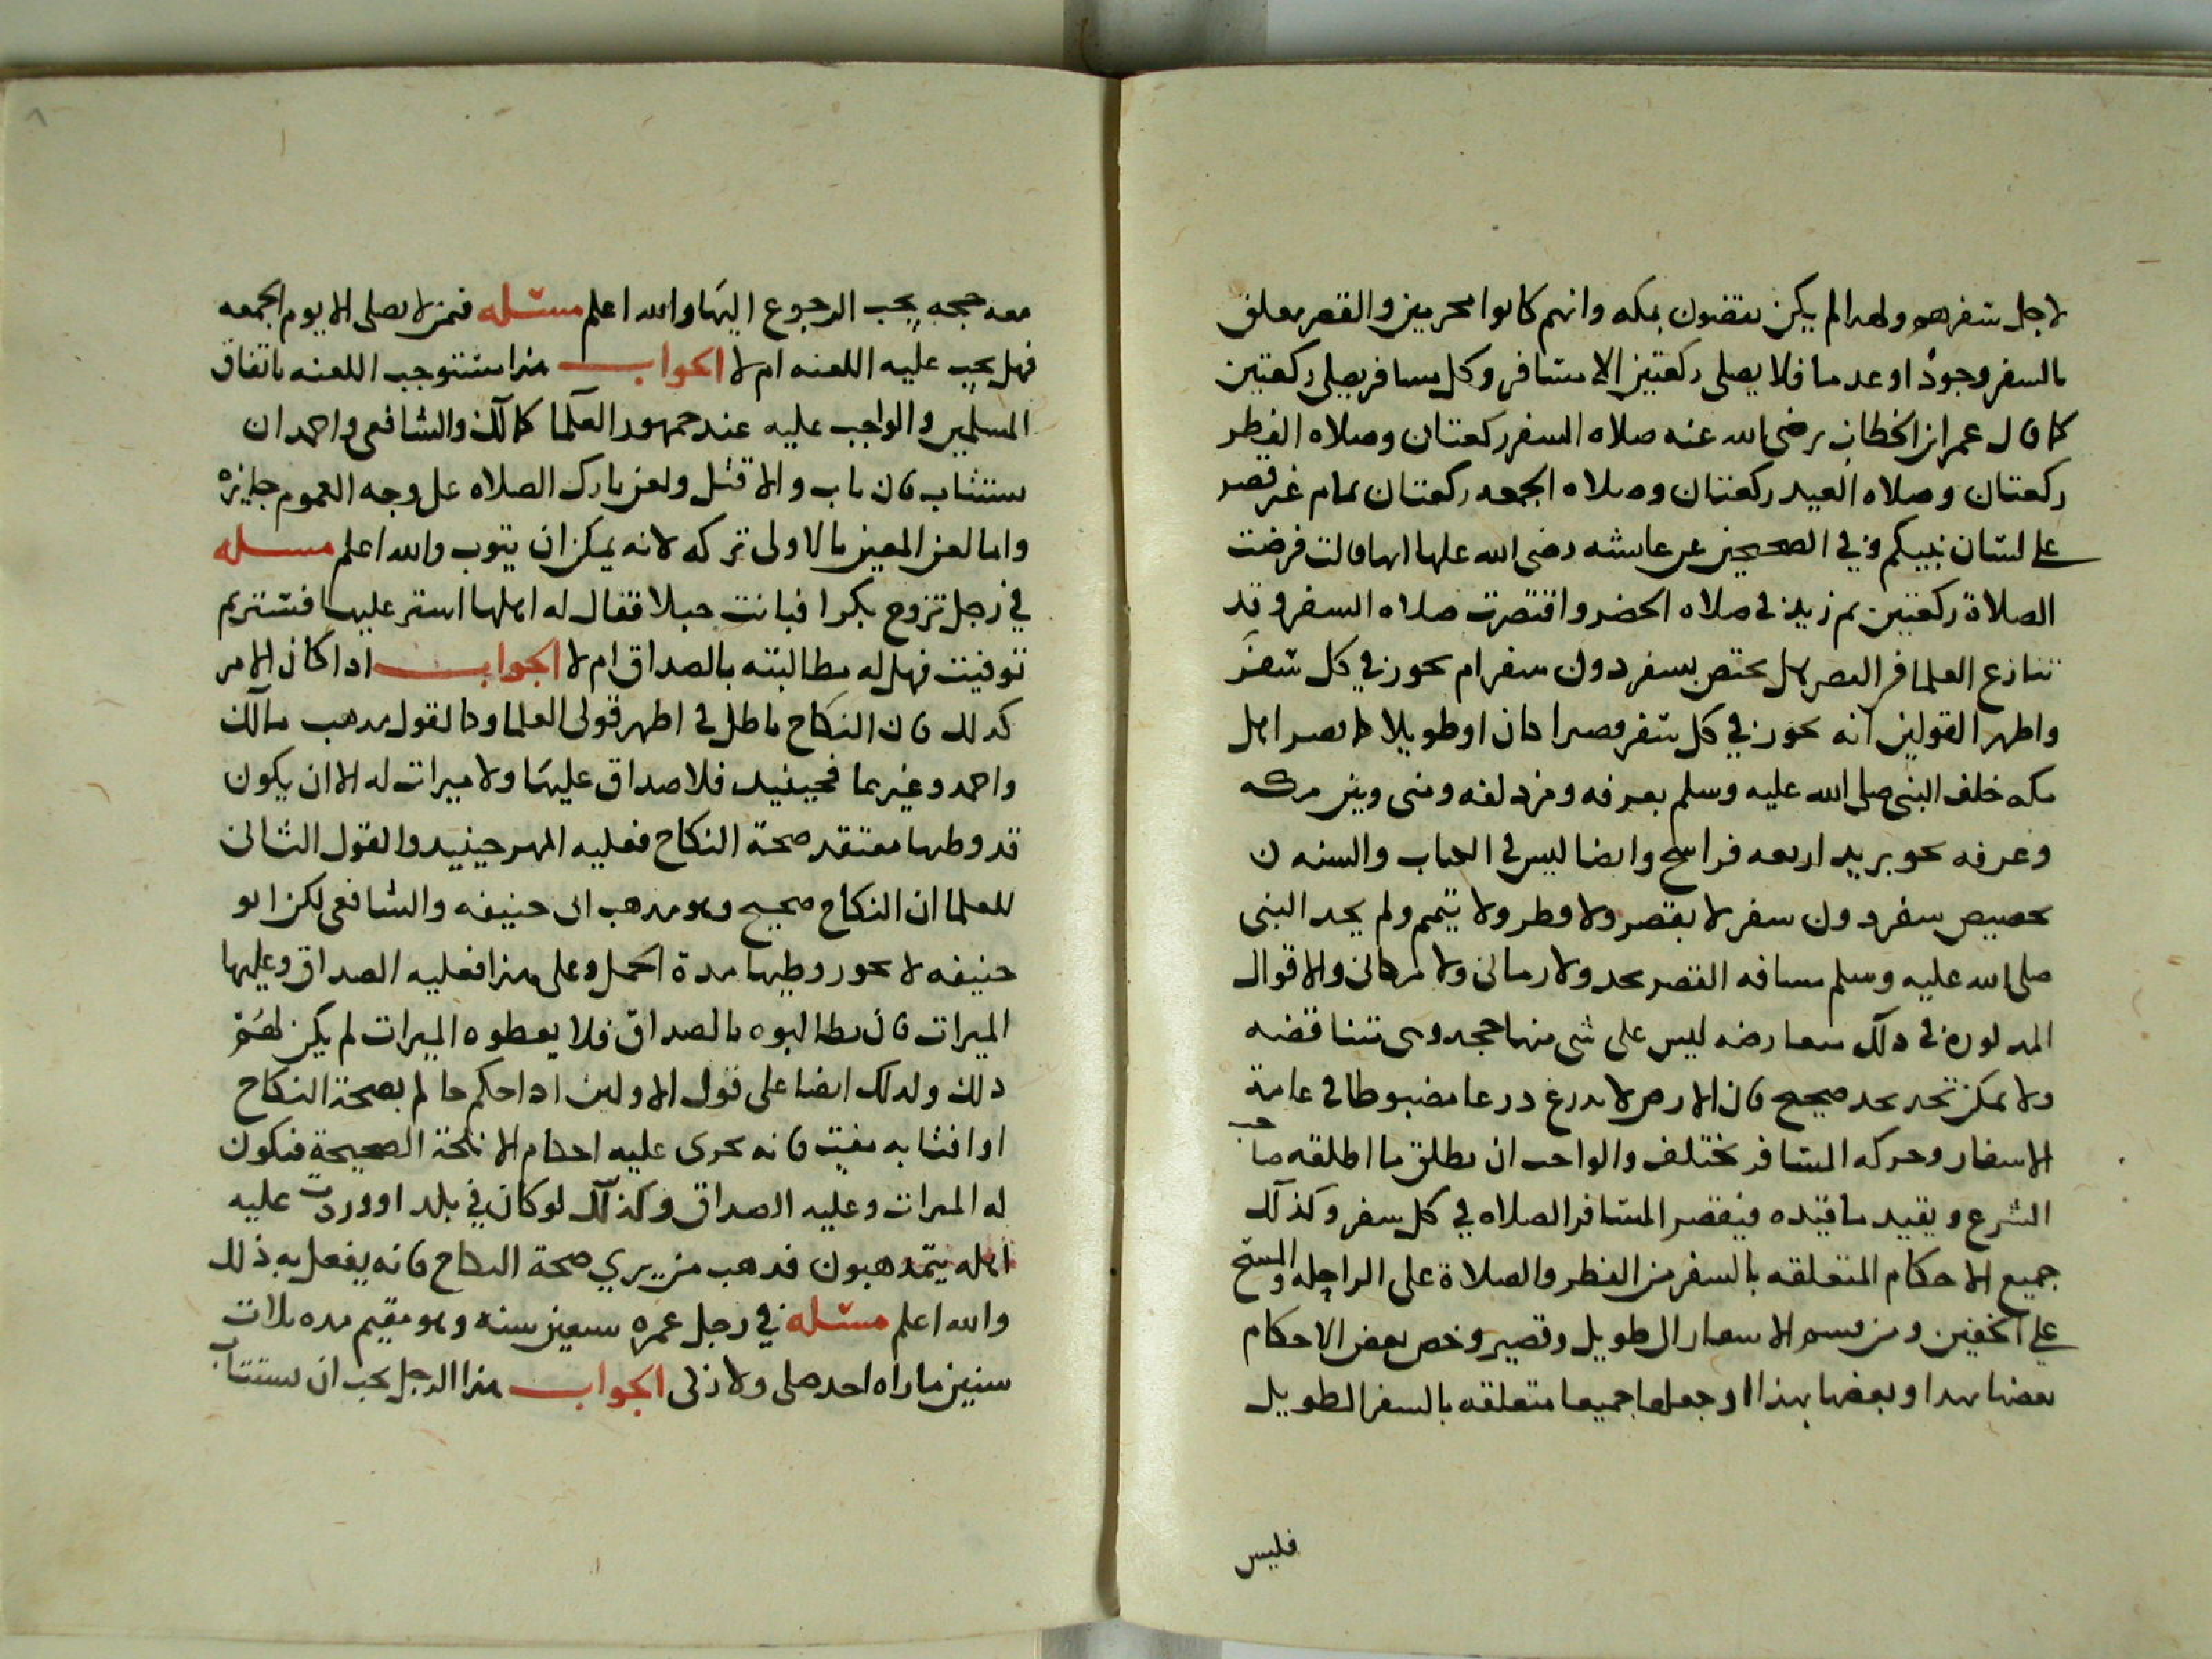 لاجل سفرهم ولهدا لم يكن يقضون بمكه وانهم كانوا محرمين والقصر معلق
بالسفر وجودا وعدما فلا يصلى ركعتين الا مسافر وكل مسافر يصلى ركعتين
كما قال عمر ابن الخطاب رضى الله عنه صلاه السفر ركعتان وصلاه الفطر
ركعتان وصلاه العيد ركعتان وصلاه الجمعه ركعتان تمام غير قصر
على لسان نبيكم وفي الصحيحين عن عائشه رضى الله عليها انها قالت فرضت
الصلاة ركعتين ثم زيد في صلاه الحضر واقتصرت صلاه السفر وقد
تنازع العلما في القصر هل يختص بسفر دون سفر ام يجوز في كل سفر
واظهر القولين انه يجوز في كل سفر قصيرا كان او طويلا كما قصر اهل
مكه خلف النبى صلى الله عليه وسلم بعرفه ومزدلفه ومنى وبين مكه
وعرفه نحو بريد اربعه فراسخ وايضا ليس في الكتاب والسنه ن
تخصيص سفر دون سفر لا بقصر ولا فطر ولا تيمم ولم يحد النبى
صلى الله عليه وسلم مسافه القصر بحد ولا زمانى ولا مكانى والاقوال
المذكوره في ذلك متعارضه ليس على شى منها حجه وهى متناقضه
ولا يمكن تحد بحد صحيح فان الارض لا تدرع درعا مضبوطا في عامة
الاسفار وحركه المسافر تختلف والواجب ان يطلق ما اطلقه صاحب
الشرع ويقيد ما قيده فيقصر المسافر الصلاه في كل سفر وكذلك
جميع الاحكام المتعلقه بالسفر من الفطر والصلاة على الراحله والمسح
على الخفين ومن قسم الاسفار الى طويل وقصير وخص بعض الاحكام
بعضها بهدا وبعضها بهذا او جعلها جميعها متعلقه بالسفر الطويل
فليس
٨
معه حجه يجب الرجوع اليها والله اعلم مسئله فيمن لا يصلى الا يوم الجمعه
فهل يجب عليه اللعنه ام لا الجواب هذا استوجب اللعنه باتفاق
المسلمين والواجب عليه عند جمهور العلما كمالك والشافعى واحمد ان
يستتاب فان تاب والا قتل ولعن تارك الصلاه على وجه العموم جايزه
واما لعن المعين فالاولى تركه لانه يمكن ان يتوب والله اعلم مسئله
في رجل تزوج بكرا فبانت حبلا فقال له اهلها استر عليها فستر ثم
توفيت فهل له مطالبته بالصداق ام لا الجواب ادا كان الامر
كدلك فان النكاح باطل في اظهر قولى العلما وهذا القول مدهب مالك
واحمد وغيرهما فحينيد فلا صداق عليها ولا ميراث له الا ان يكون
قد وطيها معتقد صحة النكاح فعليه المهر حينيد والقول الثانى
للعلما ان النكاح صحيح وهو مدهب ابى حنيفه والشافعى لكن ابو
حنيفه لا يجوز وطيها مدة الحمل وعلى هذا فعليه الصداق وعليها
الميراث فان يطالبوه بالصداق فلا يعطوه الميراث لم يكن لهم
دلك وكدلك ايضا على قول الاولين ادا حكم حاكم بصحة النكاح
او افتا به مفت فانه يجرى عليه احكام الانكحة الصحيحة فيكون
له الميراث وعليه الصداق وكذلك لو كان في بلد او وردت عليه
اهله يتمدهبون فدهب من يري صحة النكاح فانه يفعل به ذلك
والله اعلم مسئله في رجل عمره سبعين سنه وهو مقيم مده ثلاث
سنين ما راه احد صلى ولا زكى الجواب هذا الرجل يجب ان يستتاب